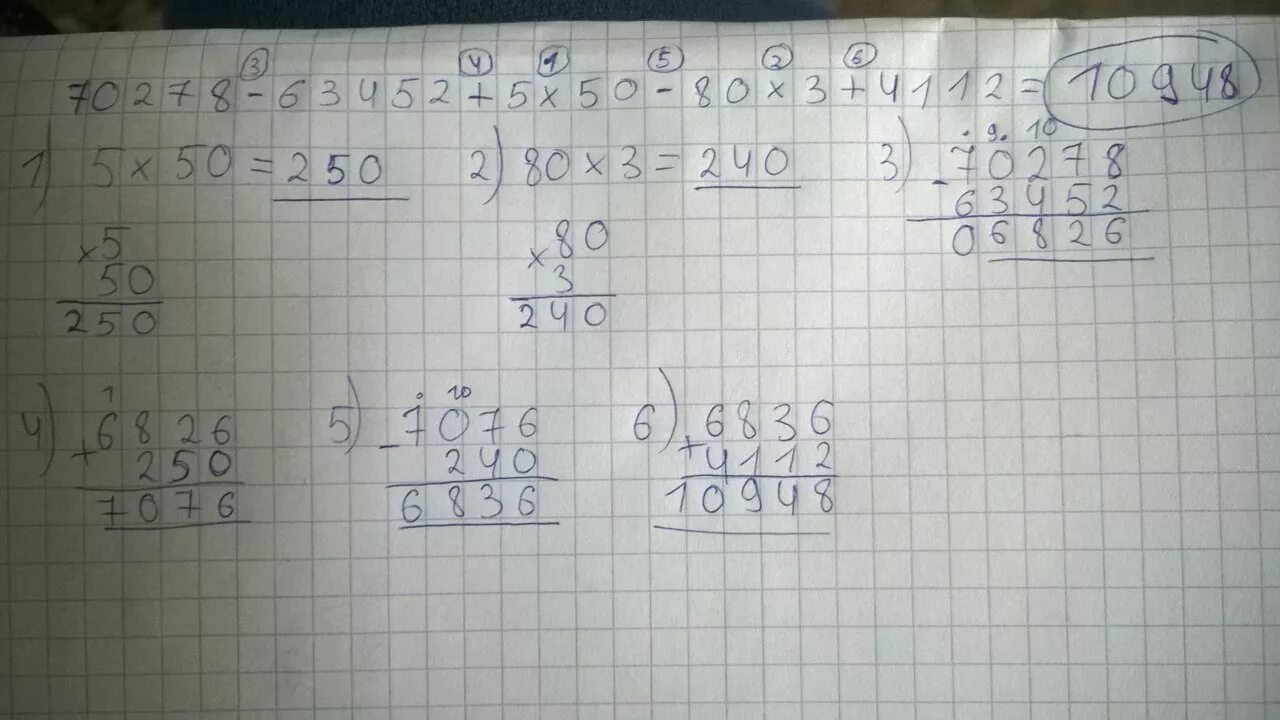 ③ ④ ① ⑤ ② ⑥
70278-63452+5×50-80×3+4112=10948
1) 5×50=250
×5
50
250
2) 80×3=240
×80
3
240
3) . 9. 10
-70278
63452
06826
4) 1
+6826
250
7076
5) . 10
-7076
240
6836
6) +6836
4112
10948